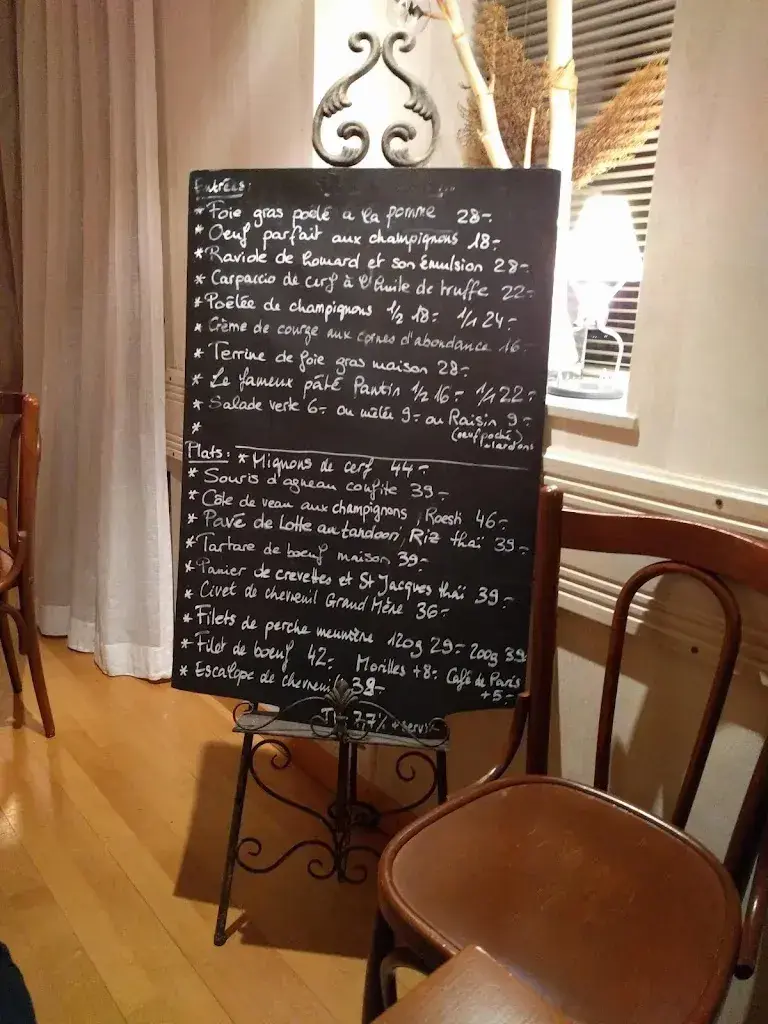 Entrées:
* Foie gras poêlé à la pomme 28.-
* Oeuf parfait aux champignons 18.-
* Raviole de homard et son émulsion 28.-
* Carpaccio de cerf à l'huile de truffe 22.-
* Poêlée de champignons 1/2 18.- 1/1 24.-
* Crème de courge aux cornes d'abondance 16.-
* Terrine de foie gras maison 28.-
* Le fameux pâté Pantin 1/2 16.- 1/1 22.-
* Salade verte 6.- ou mêlée 9.- ou Raisin 9.-
(oeuf poché)
* lardons
Plats: * Mignons de cerf 44.-
* Souris d'agneau confite 39.-
* Côte de veau aux champignons, Roesti 46.-
* Pavé de Lotte au tandoori, Riz thaï 39.-
* Tartare de boeuf maison 39.-
* Panier de crevettes et St Jacques thaï 39.-
* Civet de chevreuil Grand Mère 36.-
* Filets de perche meunière 120g 29.- 200g 39
* Filet de boeuf 42.- Morilles +8.- Café de Paris
+5.-
* Escalope de chevreuil 38.-
7,7% + servic